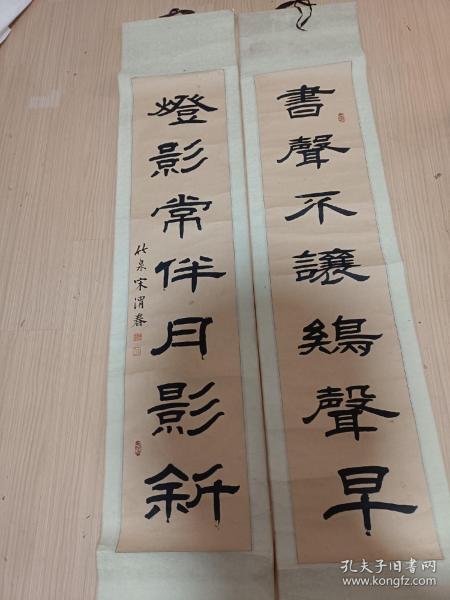 書聲不讓鷄聲早
燈影常伴月影新
竹泉宋渭春
孔夫子旧书网
www.kongfz.com